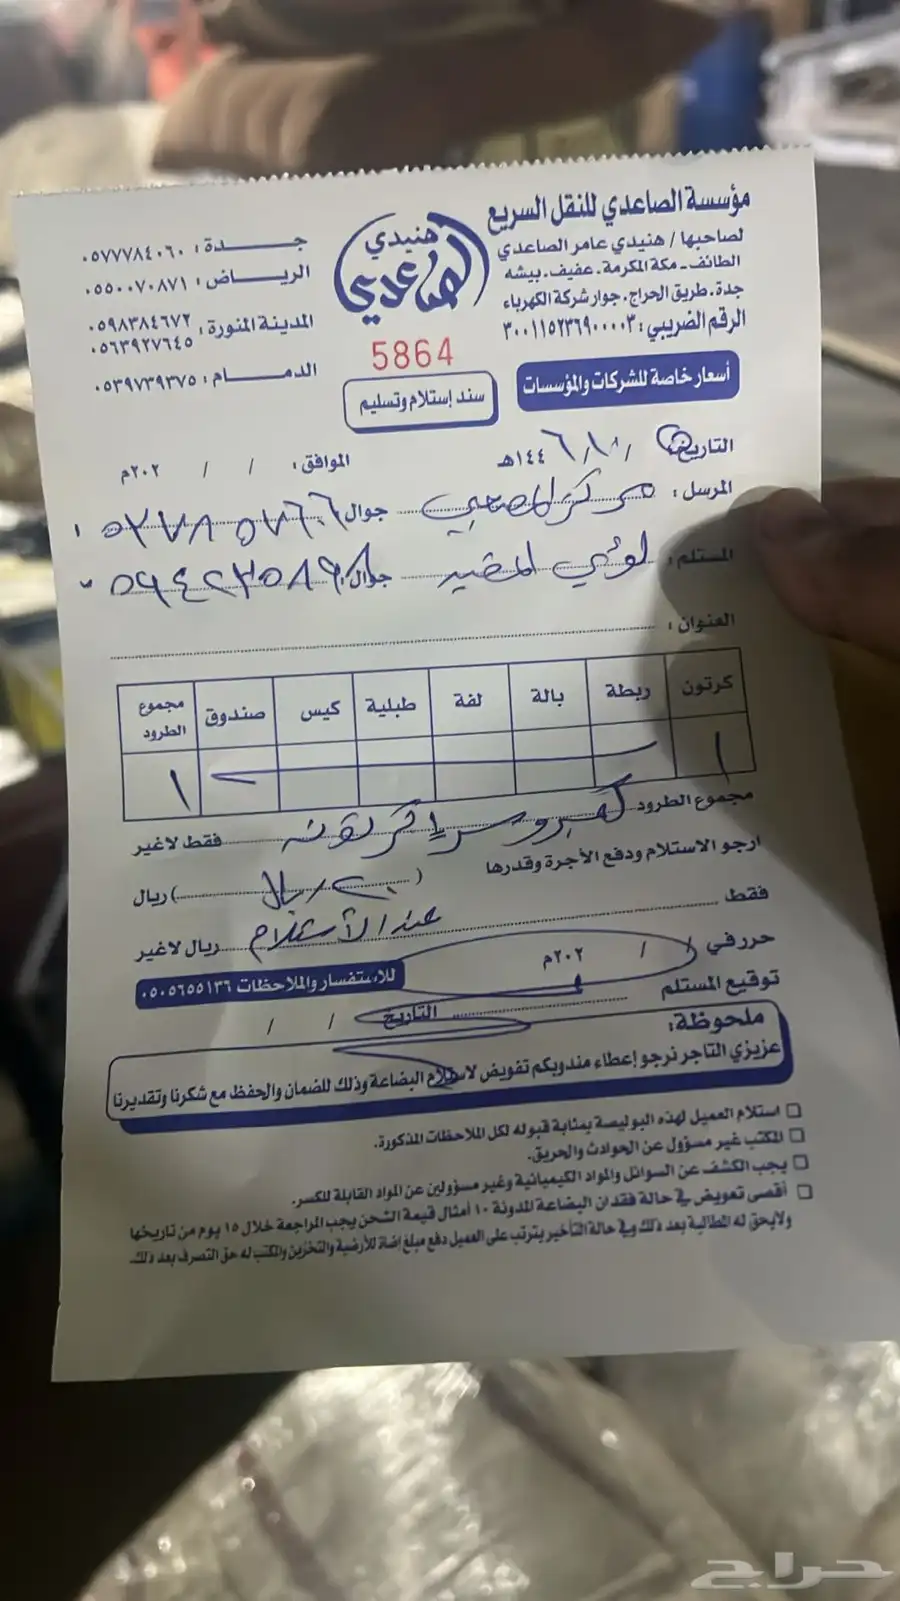 مؤسسة الصاعدي للنقل السريع
لصاحبها / هنيدي عامر الصاعدي
الطائف - مكة المكرمة . عفيف . بيشه
جدة . طريق الحراج . جوار شركة الكهرباء
الرقم الضريبي : ٣٠٠١١٥٢٣٦٩٠٠٠٠٣
أسعار خاصة للشركات والمؤسسات
هنيدي
الصاعدي
5864
سند إستلام وتسليم
جــدة : ٠٥٧٧٧٨٤٠٦٠
الرياض : ٠٥٥٠٠٧٠٨٧١
المدينة المنورة : ٠٥٩٨٣٨٤٦٧٢
٠٥٦٣٩٢٧٦٤٥
الدمــام : ٠٥٣٩٧٣٩٣٧٥
التاريخ ١٤٤٦/٨/ هـ الموافق : / / ٢٠٢م
المرسل : مركز جوال
المستلم : لؤي جوال
العنوان :
كرتون ربطة بالة لفة طبلية كيس صندوق مجموع الطرود
١ ١
مجموع الطرود كرتونه فقط لاغير
ارجو الاستلام ودفع الأجرة وقدرها ( ريال ) ريال
فقط عند الأستلام ريال لاغير
حرر في / / ٢٠٢م
للاستفسار والملاحظات ٠٥٠٥٦٥٥١٣٦
توقيع المستلم التاريخ / /
ملحوظة:
عزيزي التاجر نرجو إعطاء مندوبكم تفويض لاستلام البضاعة وذلك للضمان والحفظ مع شكرنا وتقديرنا
استلام العميل لهذه البوليصة بمثابة قبوله لكل الملاحظات المذكورة.
المكتب غير مسؤول عن الحوادث والحريق.
يجب الكشف عن السوائل والمواد الكيميائية وغير مسؤولين عن المواد القابلة للكسر.
أقصى تعويض في حالة فقدان البضاعة المدونة ١٠ أمثال قيمة الشحن يجب المراجعة خلال ١٥ يوم من تاريخها
ولايحق له المطالبة بعد ذلك وفي حالة التأخير يترتب على العميل دفع مبلغ إضافة للأرضية والتخزين والمكتب له حق التصرف بعد ذلك.
حراج